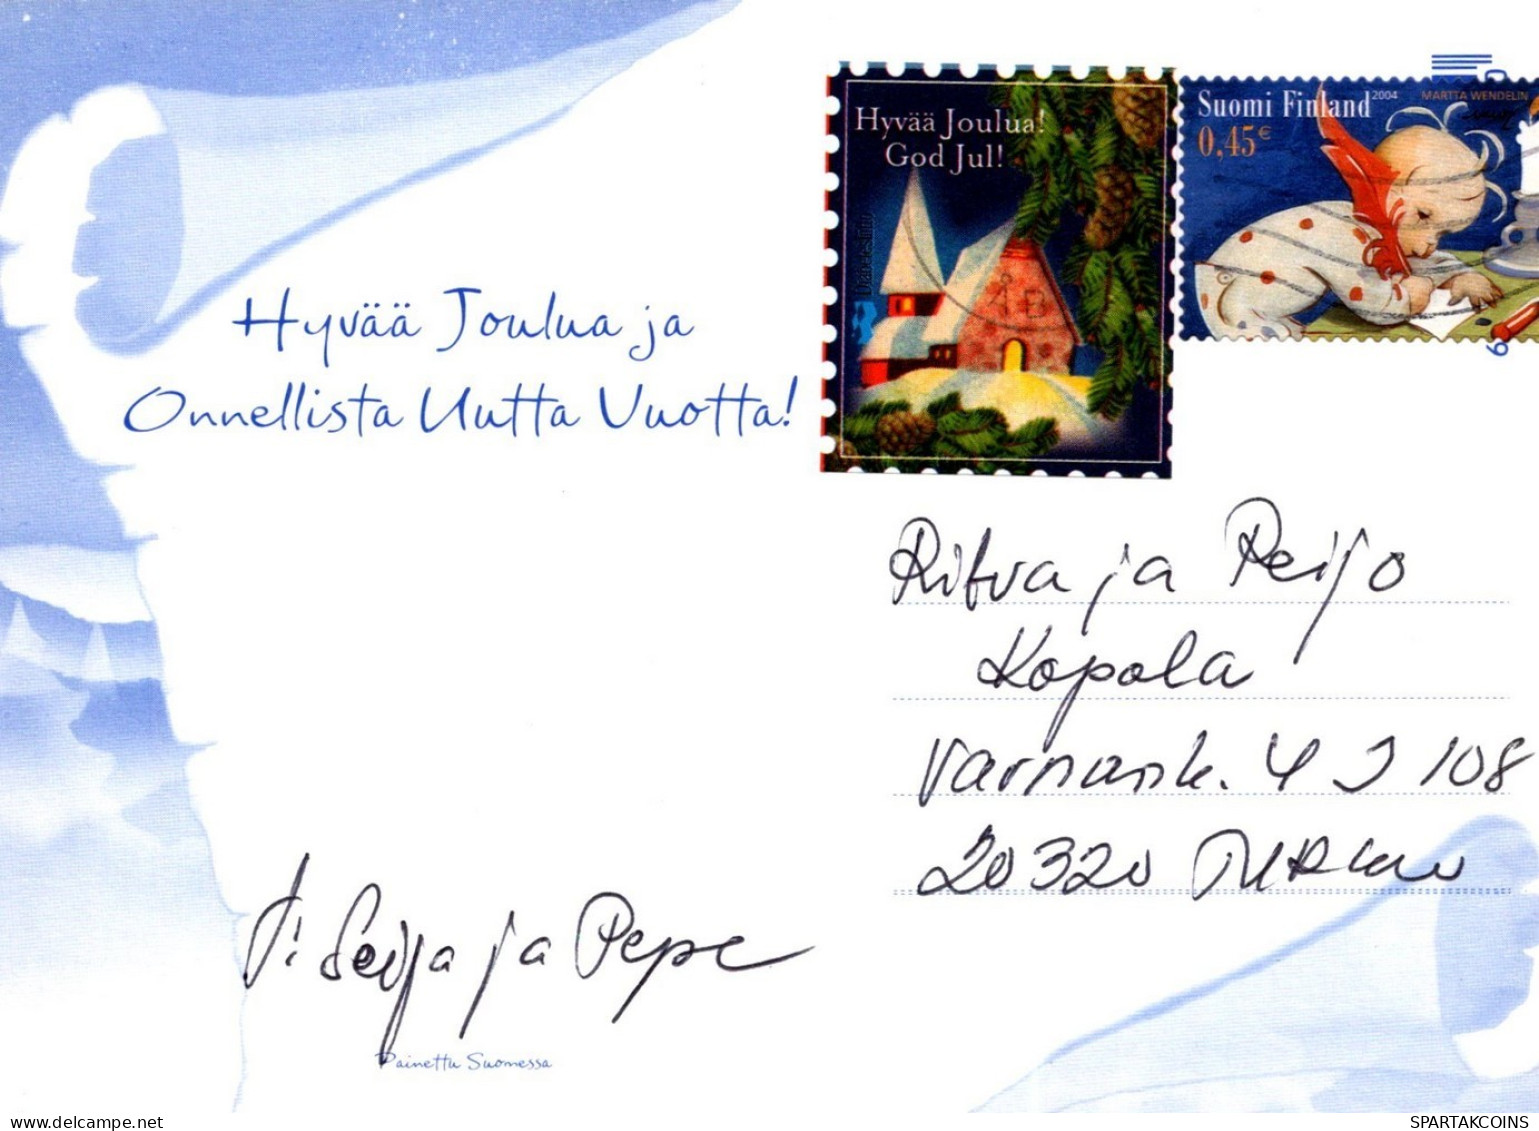 Hyvää Joulua ja
Onnellista Uutta Vuotta!
Hyvää Joulua!
God Jul!
Diabetesliitto
ÅB
Suomi Finland 2004
0,45€
MARTTA WENDELIN
Ritva ja Reijo
Kopola
Varnank. 4 J 108
20320 Turku
T: Seija ja Pepe
Painettu Suomessa
SPARTAKCOINS
www.delcampe.net